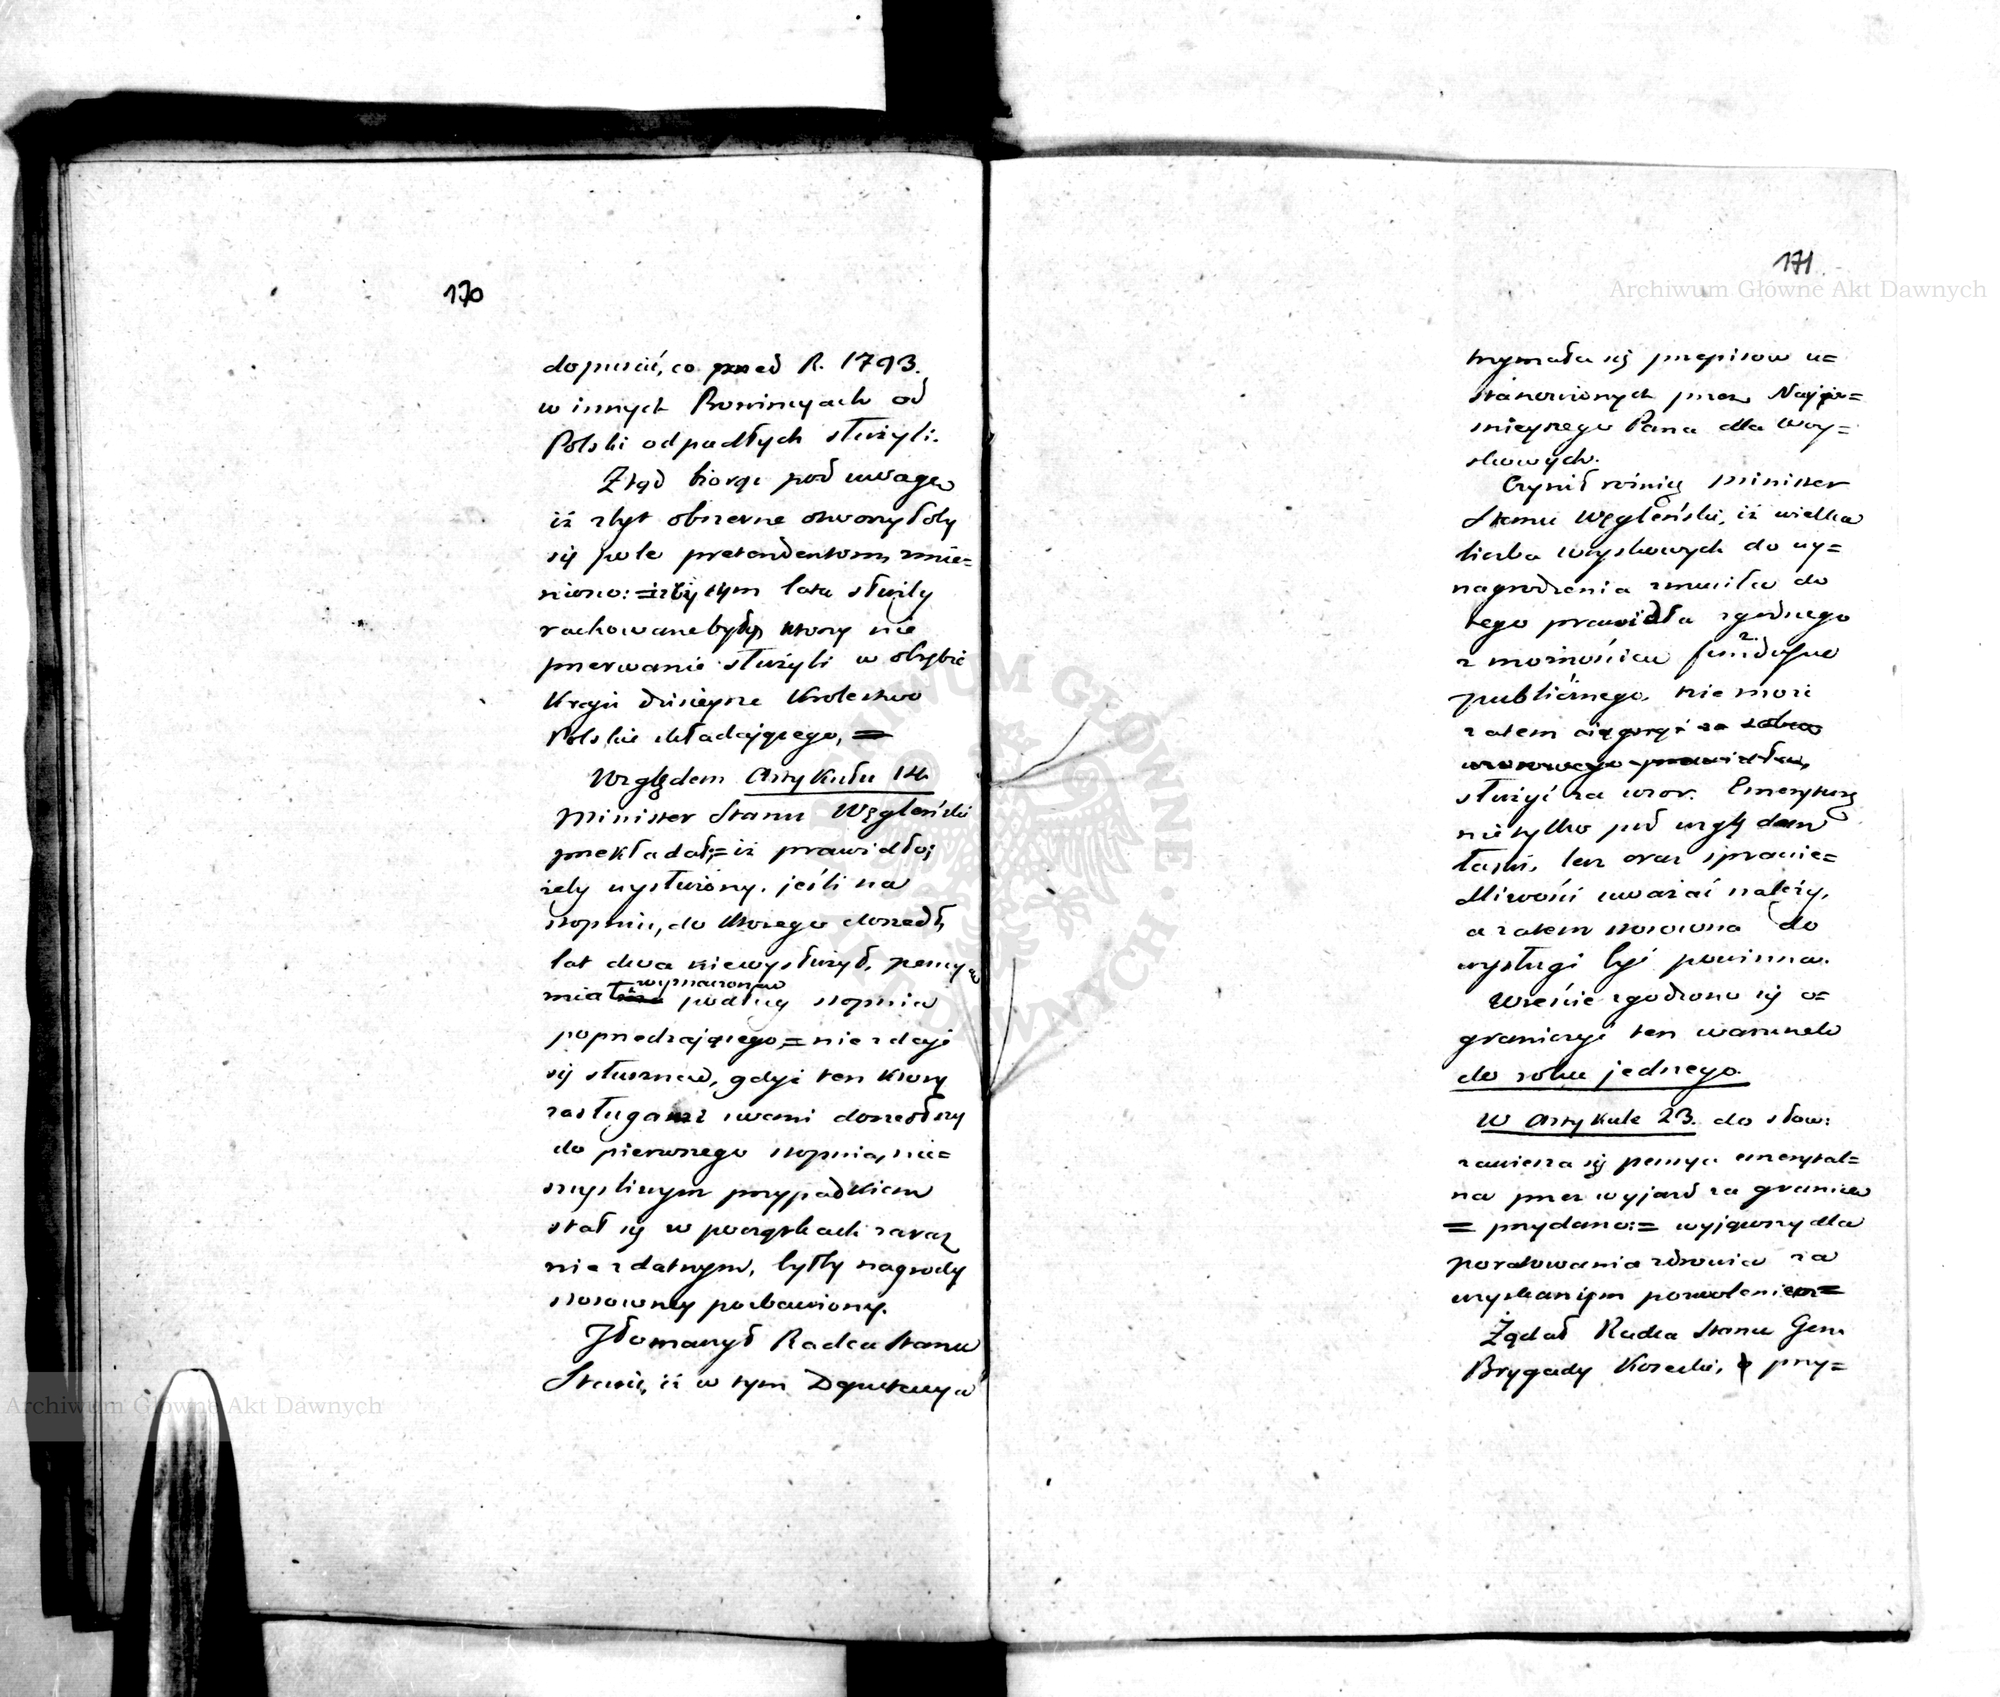 170
dopuścić, co przed R. 1793.
w innych Prowincyach od
Polski odpadłych służyli.
Ztąd biorąc pod uwagę
iż zbyt obszerne otworzyłoby
się pole pretendentom, zmie=
niono: = iżby tym lata służby
rachowane były, ktorzy nie
przerwanie służyli w obrębie
Kraju dzisieysze Krolestwo
Polskie składaiącego, =
Względem Artykułu 14.
Minister Stanu Węgleński
przekładał; = iż prawidło;
żeby wysłużony, jeśli na
stopniu, do ktorego doszedł,
lat dwa niewysłużył, pensyą
miał wyznaczoną podług stopnia
poprzedzaiącego, = nie zdaje
się słusznem, gdyż ten ktory
zasługami swemi doszedłszy
do pierwszego stopnia, nie=
szczęśliwym przypadkiem
stał się w początkach zaraz
niezdatnym, byłby nagrody
stosowney pozbawiony.
Tłomaczył Radca Stanu
Staszic, iż w tym Deputacya
171
trzymała się przepisow u=
stanowionych przez Nayja=
śnieyszego Pana dla Woy=
skowych.
Czynił rożnicę Minister
Stanu Węgleński, iż wielka
liczba woyskowych do wy=
nagrodzenia zmusiła do
tego prawidła zgodnego
z możnością funduszu
publicznego, nie może
zatem ciągnąć za sobą
wzorowego prawidła,
służyć za wzor. Emeryturę
nie tylko pod względem
łaski, lecz oraz sprawie=
dliwości uważać należy,
a zatem stosowna do
wysługi być powinna.
Wreście zgodzono się o=
graniczyć ten warunek
do roku jednego.
W Artykule 23. do słow:
zawiesza się pensya emerytal=
na przez wyjazd za granicę
= przydano: = wyjąwszy dla
poratowania zdrowia za
uzyskanym pozwoleniem =
Żądał Radca Stanu Gen:
Brygady Kossecki, przy=